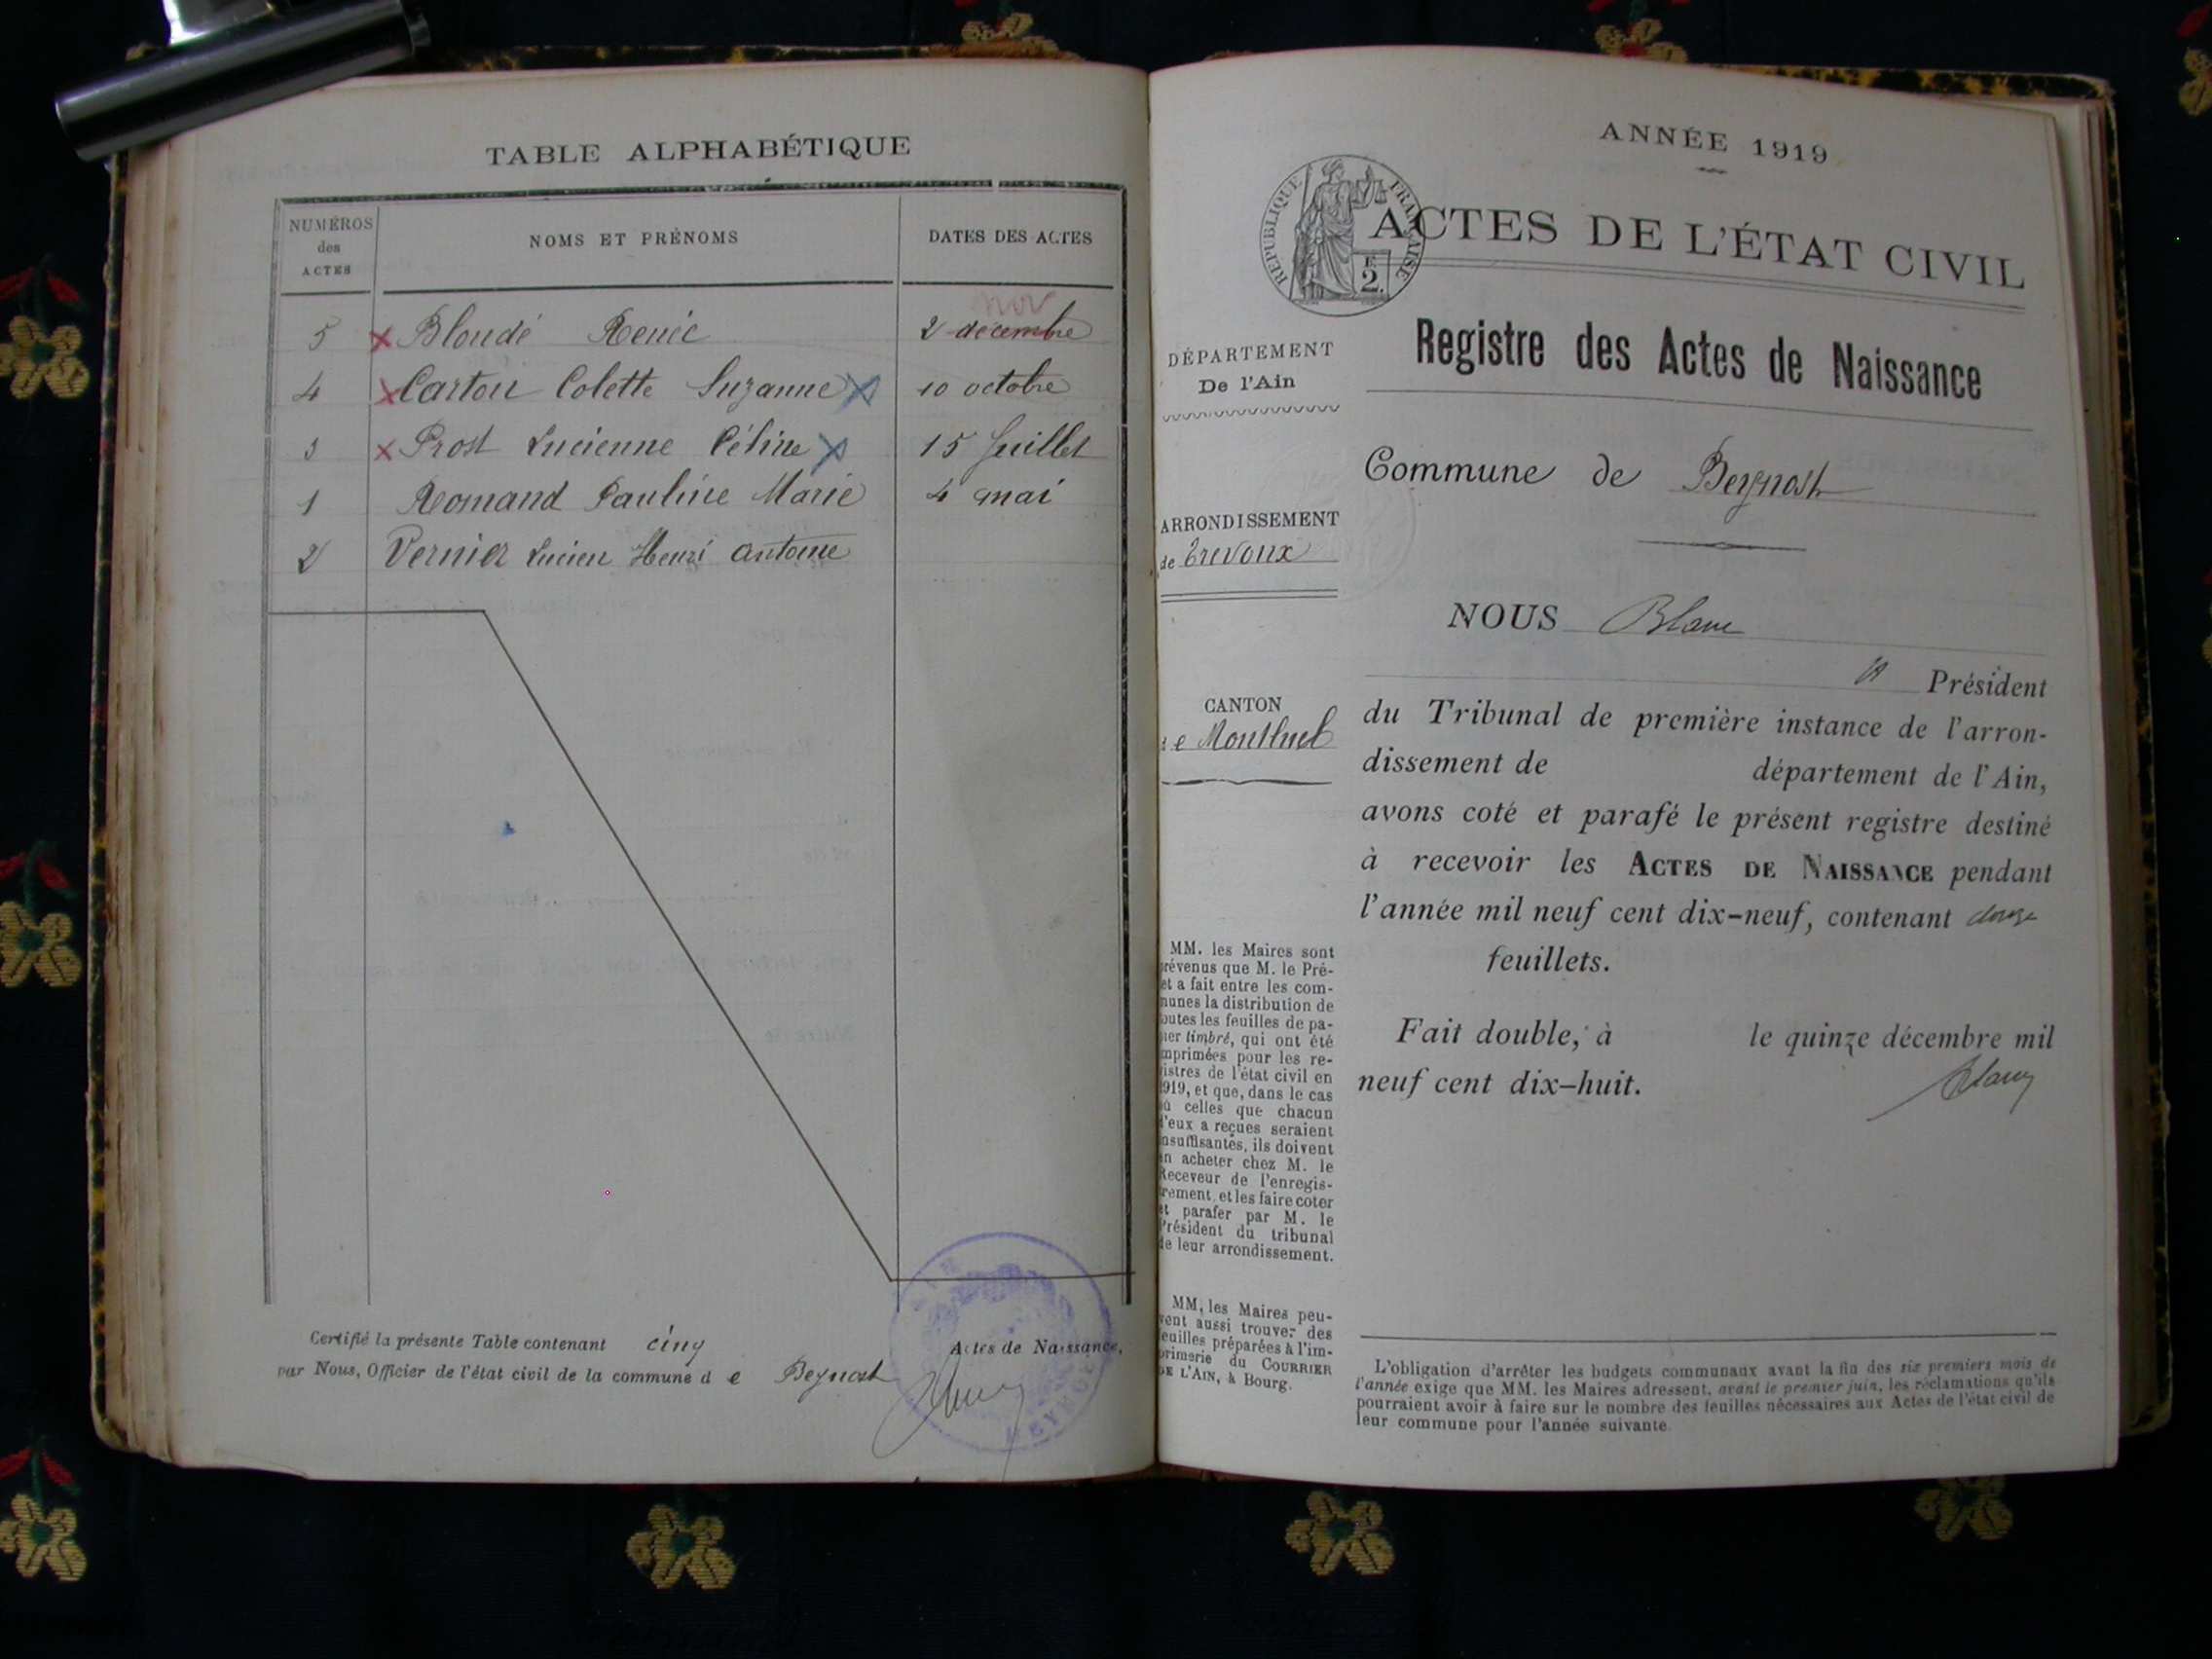 TABLE ALPHABÉTIQUE
NUMÉROS des ACTES NOMS ET PRÉNOMS DATES DES ACTES
nov
5 Bloudé Renée 2 décembre
4 Carton Colette Suzanne 10 octobre
3 Prost Lucienne Céline 15 Juillet
1 Romand Pauline Marie 4 mai
2 Vernier Lucien Henri Antoine
Certifié la présente Table contenant cinq Actes de Naissance,
par Nous, Officier de l'état civil de la commune d e Beynost
ANNÉE 1919
RÉPUBLIQUE FRANÇAISE
E 2.
ACTES DE L'ÉTAT CIVIL
Registre des Actes de Naissance
DÉPARTEMENT
De l'Ain
Commune de Beynost
ARRONDISSEMENT
de Trevoux
NOUS Blanc
Président
CANTON
e Montluel
du Tribunal de première instance de l'arron-
dissement de département de l'Ain,
avons coté et parafé le présent registre destiné
à recevoir les ACTES DE NAISSANCE pendant
l'année mil neuf cent dix-neuf, contenant douze
feuillets.
Fait double, à le quinze décembre mil
neuf cent dix-huit.
Blanc
MM. les Maires sont
révenus que M. le Pré-
et a fait entre les com-
unes la distribution de
outes les feuilles de pa-
ier timbré, qui ont été
mprimées pour les re-
istres de l'état civil en
919, et que, dans le cas
ù celles que chacun
d'eux a reçues seraient
nsuffisantes, ils doivent
n acheter chez M. le
Receveur de l'enregis-
rement, et les faire coter
et parafer par M. le
Président du tribunal
de leur arrondissement.
MM, les Maires peu-
vent aussi trouver des
euilles préparées à l'im-
primerie du COURRIER
DE L'AIN, à Bourg.
L'obligation d'arrêter les budgets communaux avant la fin des six premiers mois de
l'année exige que MM. les Maires adressent, avant le premier juin, les réclamations qu'ils
pourraient avoir à faire sur le nombre des feuilles nécessaires aux Actes de l'état civil de
leur commune pour l'année suivante.